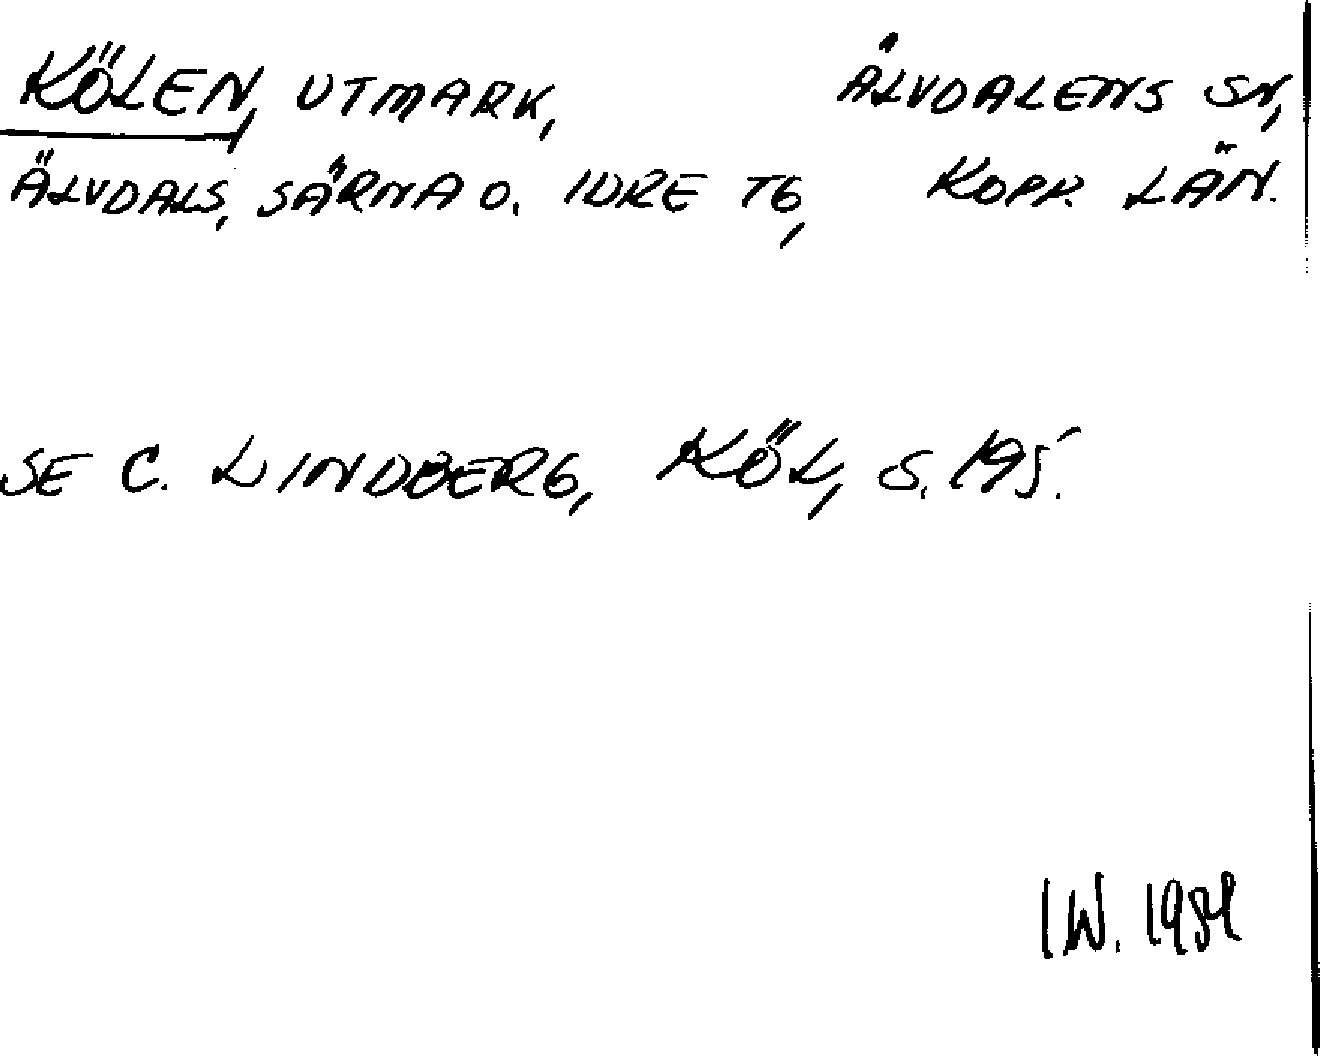 KÖLEN, UTMARK, ÄLVDALENS SN,
ÄLVDALS, SÄRNA O. IDRE TG, KOPP. LÄN.
SE C. LINDBERG, KÖL, S. 195.
IW.